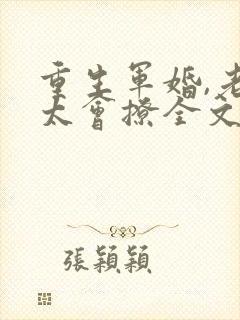 重生軍婚,老
太會撩全文
張穎穎